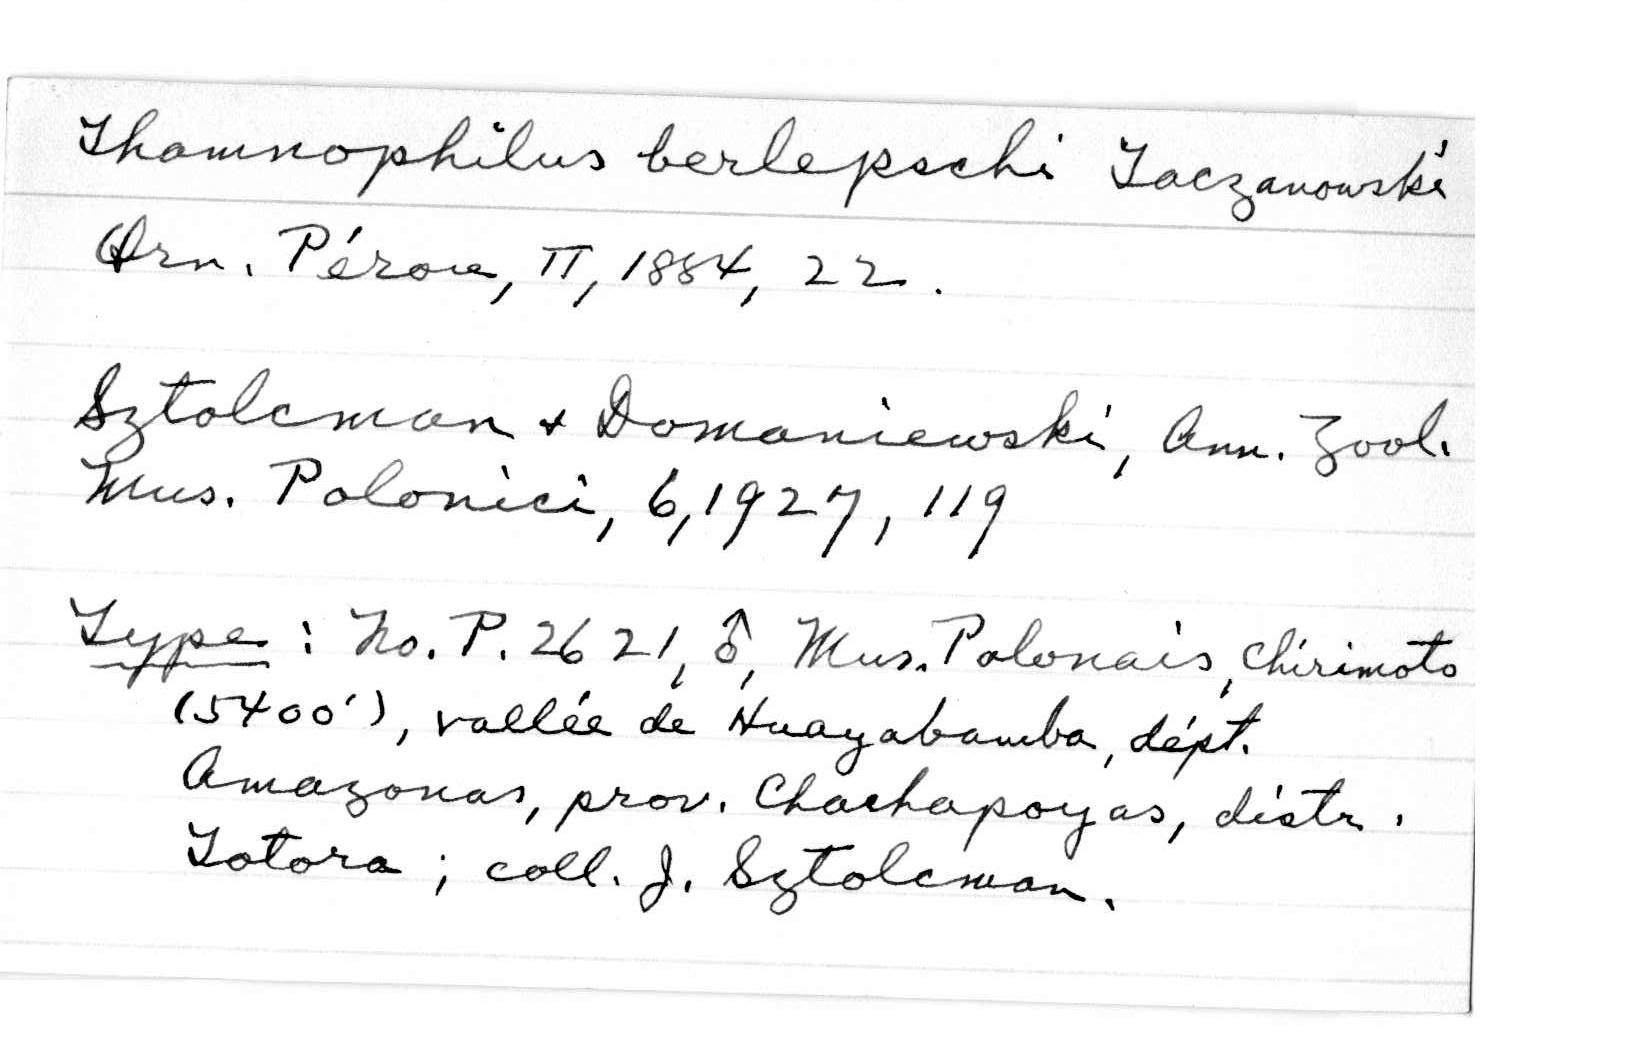 Thamnophilus berlepschi Taczanowski
Orn. Pérou, II, 1884, 22.
Sztolcman & Domaniewski, Ann. Zool.
Mus. Polonici, 6, 1927, 119
Type: No. P. 2621, ♂, Mus. Polonais, Chirimoto
(5400'), vallée de Huayabamba, dépt.
Amazonas, prov. Chachapoyas, distr.
Totora; coll. J. Sztolcman.